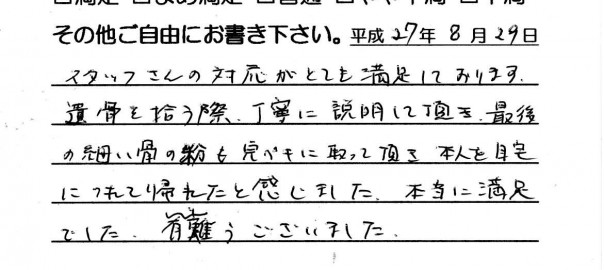 その他ご自由にお書き下さい。平成27年8月29日
スタッフさんの対応がとても満足しております。
遺骨を拾う際、丁寧に説明して頂き、最後
の細い骨の粉も完ペキに取って頂き 本人を自宅
につれて帰れたと感じました。本当に満足
でした。有難うございました。